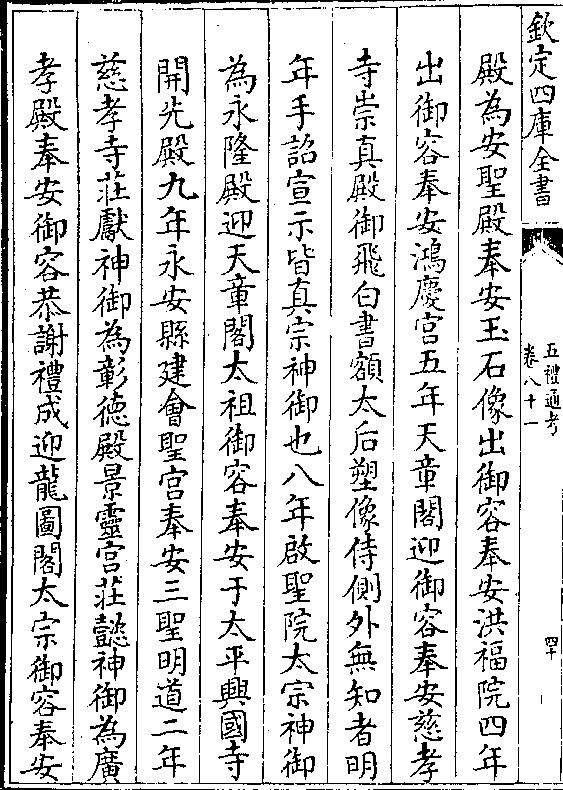 欽定四庫全書
五禮通考
卷八十一
四十
殿為安聖殿奉安玉石像出御容奉安洪福院四年
出御容奉安鴻慶宮五年天章閣迎御容奉安慈孝
寺崇真殿御飛白書額太后塑像侍側外無知者明
年手詔宣示皆真宗神御也八年啟聖院太宗神御
為永隆殿迎天章閣太祖御容奉安于太平興國寺
開先殿九年永安縣建會聖宮奉安三聖明道二年
慈孝寺莊獻神御為彰德殿景靈宮莊懿神御為廣
孝殿奉安御容恭謝禮成迎龍圖閣太宗御容奉安